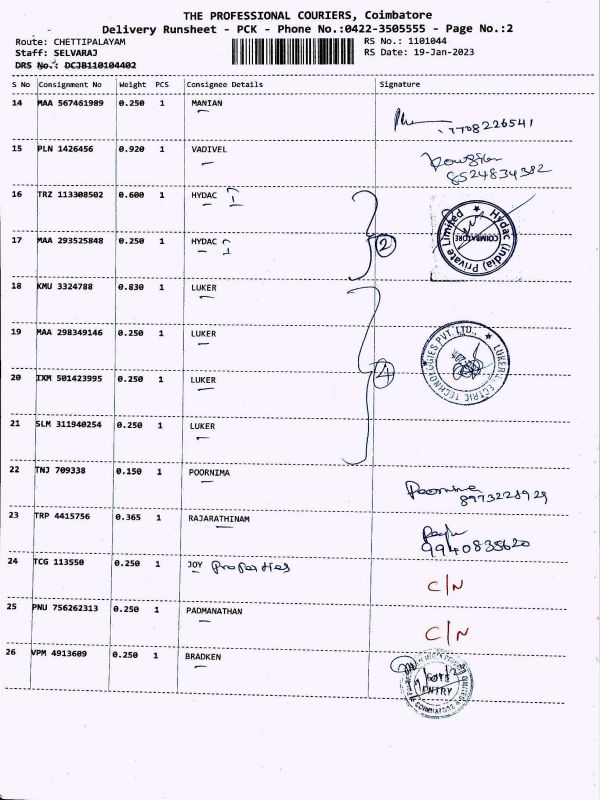 THE PROFESSIONAL COURIERS, Coimbatore
Delivery Runsheet - PCK - Phone No.:0422-3505555 - Page No.:2
Route: CHETTIPALAYAM RS No.: 1101044
Staff: SELVARAJ RS Date: 19-Jan-2023
DRS No.: DCJB110104402
S No Consignment No Weight PCS Consignee Details Signature
14 MAA 567461989 0.250 1 MANIAN
7708226541
15 PLN 1426456 0.920 1 VADIVEL
8524834382
16 TRZ 113308502 0.600 1 HYDAC
17 MAA 293525848 0.250 1 HYDAC
2
Hydac (India) Private Limited
COIMBATORE
18 KMU 3324788 0.830 1 LUKER
19 MAA 298349146 0.250 1 LUKER
20 IXM 501423995 0.250 1 LUKER
4
LUKER ELECTRIC TECHNOLOGIES PVT. LTD.
21 SLM 311940254 0.250 1 LUKER
22 TNJ 709338 0.150 1 POORNIMA
Poornima
8973228929
23 TRP 4415756 0.365 1 RAJARATHINAM
9940835620
24 TCG 113550 0.250 1 JOY Properties
C/N
25 PNU 756262313 0.250 1 PADMANATHAN
C/N
26 VPM 4913609 0.250 1 BRADKEN
ENTRY